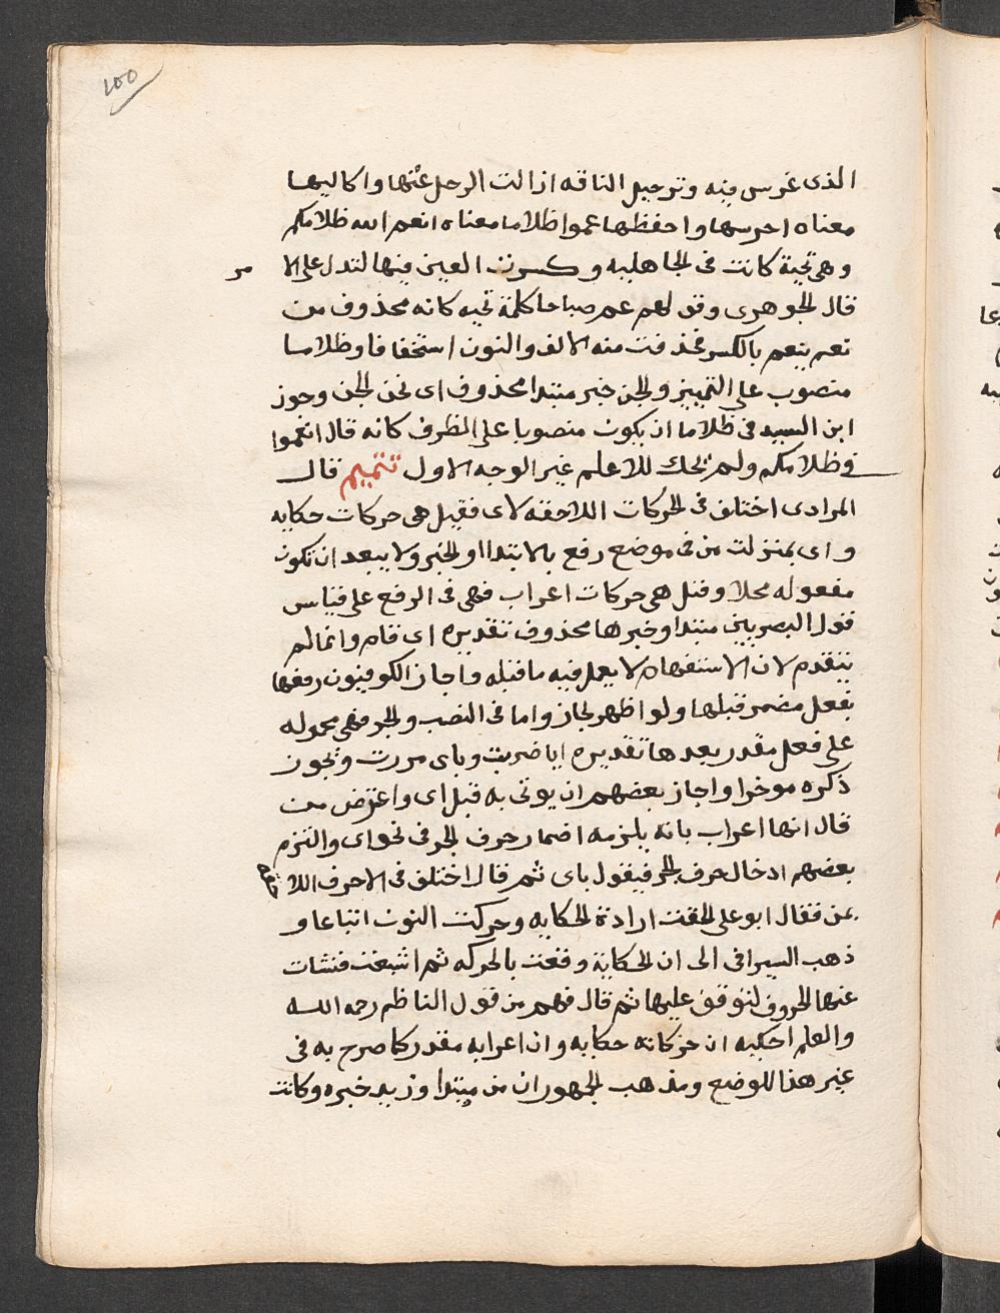 100
الذى غرس فيه وترحيل الناقه ازالت الرحل عنها واكاليها
معناه احرسها واحفظها عموا ظلاما معناه انعم الله ظلامكم
وهى تحية كانت فى الجاهليه وكسرت العين فيها لتدل على الامر
قال الجوهرى وقولهم عم صباحا كلمة تحيه كانه محذوف من
نعم ينعم بالكسر فحذفت منه الالف والنون استخفافا وظلاما
منصوب على التمييز والجن خبر مبتدا محذوف اى نحن الجن وجوز
ابن السيد فى ظلاما ان يكون منصوبا على الظرف كانه قال انعموا
فى ظلامكم ولم يحك للاعلم غير الوجه الاول تتميم قال
المرادى اختلف فى الحركات اللاحقه لاى فقيل هى حركات حكايه
واى بمنزلت من فى موضع رفع بالابتدا او الخبر ولا يبعد ان تكون
مفعوله محلا وقيل هى حركات اعراب فهى فى الرفع على قياس
قول البصريين مبتدا وخبرها محذوف تقديره اى قام وانما لم
يتقدم لان الاستفهام لا يعمل فيه ما قبله واجاز الكوفيون رفعها
بفعل مضمر قبلها ولو اظهر لجاز واما فى النصب والجر فهى محموله
على فعل مقدر بعدها تقديره ايا ضربت وباى مررت ويجوز
ذكره موخرا واجاز بعضهم ان يوتى به قبل اى واعترض من
قال انها اعراب بانه يلزمه اضمار حرف الجر فى نحو اى والتزم
بعضهم ادخال حرف الجر فيقول باى ثم قال اختلف فى الاحرف اللاحقه
بمن فقال ابو على الحقت ارادة الحكايه وحركت النون اتباعا و
ذهب السيرافى الى ان الحكاية وقعت بالحركه ثم اشبعت فنشات
عنها الحروف لتوقف عليها ثم قال فهم من قول الناظم رحمه الله
والعلم احكينه ان حركاته حكايه وان اعرابه مقدر كما صرح به فى
غير هذا الموضع ومذهب الجمهور ان من مبتدا وزيد خبره وكانت